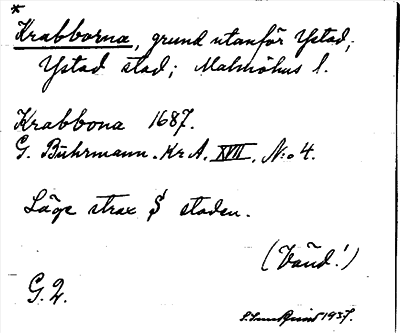 *
Krabborna, grund utanför Ystad;
Ystad stad; Malmöhus l.
Krabbona 1687.
G. Buhrmann. Kr A. XVII. N:o 4.
Läge strax S staden.
(Vänd!)
G. 2.
1937.